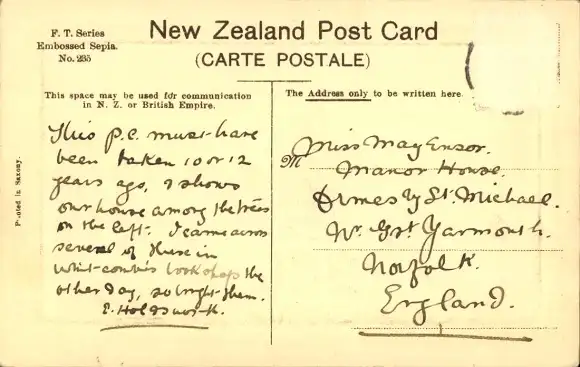 F. T. Series
Embossed Sepia.
No. 235
New Zealand Post Card
(CARTE POSTALE)
This space may be used for communication
in N. Z. or British Empire.
The Address only to be written here.
Printed in Saxony.
This p.c. must have
been taken 10 or 12
years ago, & shows
our house among the trees
on the left. I came across
several of these in
bookshops the
other day, so bought them.
E. Holdsworth.
M Miss May Ensor.
Manor House.
Ormesby St. Michael.
Nr. Grt Yarmouth.
Norfolk.
England.